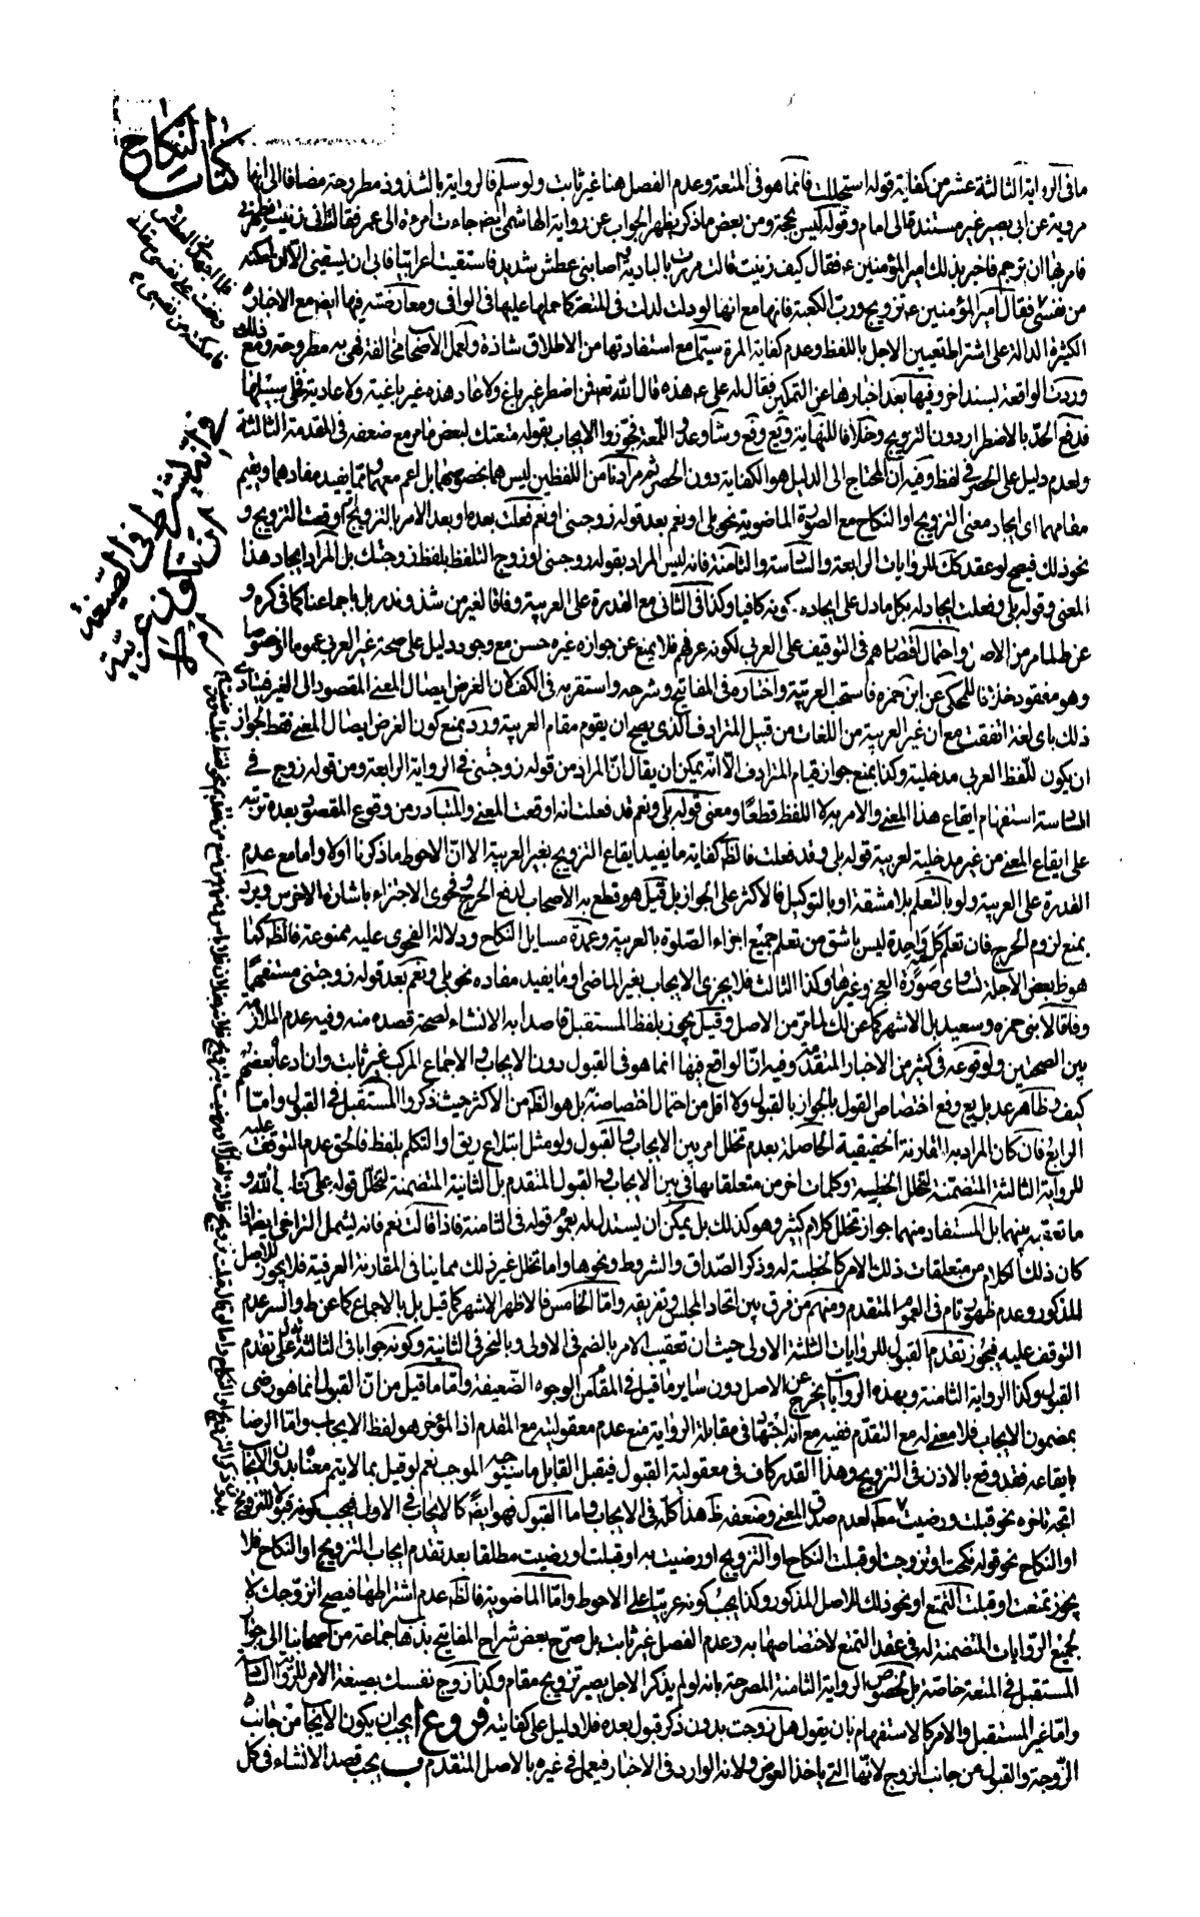 كتاب النكاح
ما فى الرواية الثالثة عشر من كفاية قوله استحللت فانما هو فى المتعة وعدم الفصل هنا غير ثابت ولو سلم فالرواية بالشذوذ مطروحة مضافا الى انها
مروية عن ابى بصير غير مستند فالى امام وقوله ليس بحجة ومن بعض ما ذكر يظهر الجواب عن رواية الهاشمى ايضا جاءت امرءة الى عمر فقالت انى زنيت فطهرنى
فامر بها ان ترجم فاخبر بذلك امير المؤمنين ع فقال كيف زنيت قالت مررت بالبادية فاصابنى عطش شديد فاستقيت اعرابيا فابى ان يسقينى الا ان امكنه
من نفسى فقال امير المؤمنين ع تزويج ورب الكعبة فانها مع انها لو دلت لدلت فى المتعة كما حملها عليها فى الوافى ومعارضته فيها ايضا مع الاخبار
الكثيرة الدالة على اشتراط تعيين الاجل باللفظ وعدم كفاية المرة سيما مع استفادتها من الاطلاق شاذة ولعمل الاصحاب مخالفة فهى به مطروحة ومع ذلك
وردت الواقعة بسند اخر وفيها بعد اخبارها عن التمكين فقال له على ع هذه قال الله تعه فمن اضطر غير باغ ولا عاد هذه غير باغية ولا عادية فخلى سبيلها
فدفع الحد بالاضطرار دون التزويج وخلافا للنهاية ويع وقع وشا وعد واللمعة فجوزوا الايجاب بقوله متعتك لبعض ما مر مع ضعفه فى المقدمة الثالثة
ولعدم دليل على الحصر فى لفظ وفيه ان المحتاج الى الدليل هو الكفاية دون الحصر ثم مرادنا من اللفظين ليس هما بخصوصهما بل اعم معهما ومما يفيد مفادهما ويقيم
مقامهما اى ايجاد معنى التزويج او النكاح مع الصورة الماضوية نحو بلى او نعم بعد قوله زوجتنى او نعم فعلت بعده او بعد الامر بالتزويج او وقعت التزويج و
نحو ذلك فيصح لو عقد كك للروايات الرابعة والسادسة والثامنة فانه ليس المراد بقوله زوجتنى او زوج التلفظ بلفظ زوجتك بل المراد ايجاد هذا
المعنى وقوله بلى وفعلت ايجاد له بكل ما دل على ايجاده. كونه كافيا وكذا فى الثانى مع القدرة على العربية وفاقا لغير من شذ وندر بل باجماعنا كما فى كره و
عن ط لما مر من الاصل واحتمال اقتضائهم فى التوقيف على العربى لكونه عرفهم فلا يمنع عن جوازه غيره حسن مع وجود دليل على صحة غير العربى عموما او خصوصا
وهو مفقود خلافا للمحكى عن ابن حمزه فاستحب العربية واختاره فى المفاتيح وشرحه واستقربه فى الكف لان الغرض ايصال المعنى المقصود الى الغير فيتادى
ذلك باى لغة اتفقت مع ان غير العربية من اللغات من قبيل المترادف الذى يصح ان يقوم مقام العربية ورد بمنع كون الغرض ايصال المعنى فقط لجواز
ان يكون للفظ العربى مدخلية وكذا بمنع جواز قيام المترادف الا انه يمكن ان يقال ان المراد من قوله زوجتنى فى الرواية الرابعة ومن قوله زوج فى
السادسة استفهام ايقاع هذا المعنى والامر به لا اللفظ قطعا ومعنى قوله بلى ونعم قد فعلت انه اوقعت المعنى والمتبادر من وقوع المقصود بعده ترتبه
على ايقاع المعنى من غير مدخلية لعربية قوله بلى وقد فعلت فالظ كفاية ما يفيد ايقاع التزويج بغير العربية الا ان الاحوط ما ذكرنا اولا واما مع عدم
القدرة على العربية ولو بالتعلم بلا مشقة او بالتوكيل فالاكثر على الجواز بل قيل هو قطع به الاصحاب لدفع الحرج وفحوى الاجتزاء باشارة الاخرس ويرد
بمنع لزوم الحرج فان تعلم كل واحدة ليس باشق من تعلم جميع اجزاء الصلوة بالعربية وعمدة مسايل النكاح ودلالة الفحوى عليه ممنوعة فالظ كما
هو ظ بعض الاجلة تساوى صورة العجز وغيرها وكذا الثالث فلا يجزى الايجاب بغير الماضى وما يفيد مفاده نحو بلى ونعم بعد قوله زوجتنى مستفهما
وفاقا لابنى حمزه وسعيد بل الاشهر كما عن لك لما مر من الاصل وقيل يجوز بلفظ المستقبل قاصدا به الانشاء لصحة قصده منه وفيه عدم الملازمة
بين الصحتين ولوقوعه فى كثير من الاخبار المتقدمة وفيه ان الواقع فيها انما هو فى القبول دون الايجاب والاجماع المركب غير ثابت وان ادعاه بعضهم
كيف وظاهر عد بل يع وفع اختصاص القول بالجواز بالقبول ولا اقل من احتمال اختصاصه بل هو الظ من الاكثر حيث ذكروا المستقبل فى القبول واما
الرابع فان كان المراد به المقارنة الحقيقية الحاصلة بعدم تخلل امر بين الايجاب والقبول ولو مثل ابتلاع ريق او التكلم بلفظ فالحق عدم التوقف عليه
للرواية الثالثة المتضمنة لتخلل الخطبة وكلمات اخر من متعلقاتها فى بين الايجاب والقبول المتقدم بل الثانية المتضمنة لتخلل قوله على كتاب الله و
ما تعقبه بينهما بل المستفاد منهما جواز تخلل كلام كثير وهو كذلك بل يمكن ان يستدل له بعموم قوله فى الثامنة فاذا قالت نعم فانه يشمل التراخى ايضا اذا
كان ذلك الكلام من متعلقات ذلك الامر كالخطبة له وذكر الصداق والشروط ونحوها واما تخلل غير ذلك مما ينافى المقارنة العرفية فلا يجوز للاصل
المذكور وعدم ظهور تام فى العموم المتقدم ومنهم من فرق بين اتحاد المجلس وتفريقه واما الخامس فالاظهر الاشهر كما قيل بل بالاجماع كما عن ط والسر عدم
التوقف عليه فيجوز تقدم القبول للروايات الثلثة الاولى حيث ان تعقيب الامر بالضم فى الاولى وبالنحر فى الثانية وكونه جوابا فى الثالثة يدل على تقدم
القبول وكذا الرواية الثامنة وبهذه الروايات يخرج عن الاصل دون ساير ما قيل فى المقام من الوجوه الضعيفة واما ما قيل من ان القبول انما هو رضى
بمضمون الايجاب فلا معنى له مع التقدم ففيه مع انه اجتهاد فى مقابلة الرواية منع عدم معقوليته مع المقدم اذ المؤخر هو لفظ الايجاب واما الرضا
بايقاعه فقد وقع بالاذن فى التزويج وهذا القدر كاف فى معقولية القبول فيقبل القابل ما سيوجبه الموجب نعم لو قيل بما لا يتم معناه بدون الايجاب
اتجه تاخره نحو قبلت ورضيت مط لعدم صدق المعنى وضعفه ظ هذا كله فى الايجاب واما القبول فهو ايضا كالايجاب فى الاول فيجب كونه قبولا للتزويج
او النكاح نحو قوله نكحت او تزوجت او قبلت النكاح او التزويج او رضيت به او قبلت او رضيت مطلقا بعد تقدم ايجاب التزويج او النكاح فلا
يجوز تمتعت او قبلت التمتع او نحو ذلك للاصل المذكور وكذا يجب كونه عربيا على الاحوط واما الماضوية فالظ عدم اشتراطها فيصح اتزوجك لا
لجميع الروايات المتضمنة له فى عقد التمتع لاختصاصها به وعدم الفصل غير ثابت بل صرح بعض شراح المفاتيح بذهاب جماعة من اصحابنا الى جواز
المستقبل فى المتعة خاصة بل لخصوص الرواية الثامنة المصرحة بانه لو لم يذكر الاجل يصير تزويج مقام وكذا زوج نفسك بصيغة الامر للرواية السادسة
واما غير المستقبل والامر كالاستفهام بان يقول هل زوجت بدون ذكر قبول بعده فلا دليل على كفايته فروع أ يجب ان يكون الايجاب من جانب
الزوجة والقبول من جانب الزوج لانها التى ياخذ العوض ولانه الوارد فى الاخبار فيعمل فى غيره بالاصل المتقدم ب يجب قصد الانشاء فى كل
فامكنته من نفسى م
فى انه يشترط فى الصيغة
ان تكون عربية